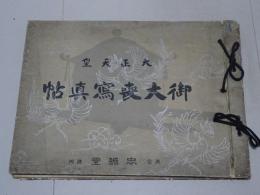 大正天皇
御大喪寫眞帖
忠誠堂